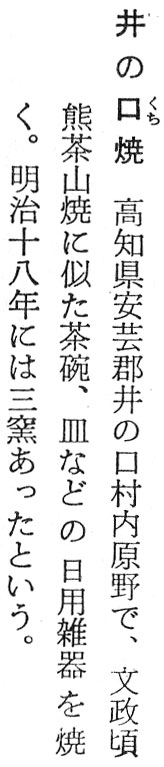 井の口焼　高知県安芸郡井の口村内原野で、文政頃
熊茶山焼に似た茶碗、皿などの日用雑器を焼
く。明治十八年には三窯あったという。